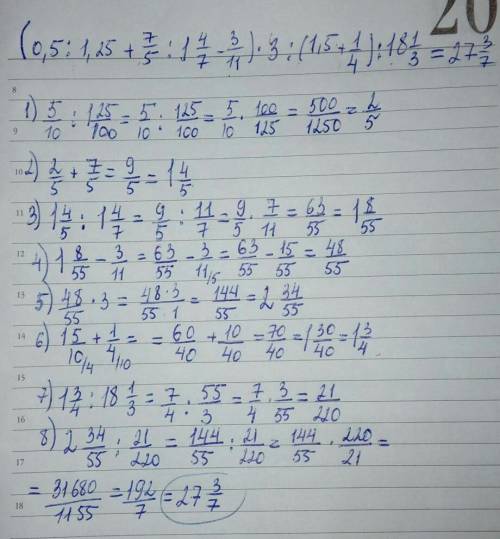 20
(0,5 : 1,25 + 7/5 : 1 4/7 - 3/11) · 3 : (1,5 + 1/4) : 18 1/3 = 27 3/7
8
1) 5/10 : 125/100 = 5/10 : 125/100 = 5/10 · 100/125 = 500/1250 = 2/5
9
10 2) 2/5 + 7/5 = 9/5 = 1 4/5
11 3) 1 4/5 : 1 4/7 = 9/5 : 11/7 = 9/5 · 7/11 = 63/55 = 1 8/55
12 4) 1 8/55 - 3/11 = 63/55 - 3/11/5 = 63/55 - 15/55 = 48/55
13 5) 48/55 · 3 = 48·3/55·1 = 144/55 = 2 34/55
14 6) 15/10/4 + 1/4/10 = = 60/40 + 10/40 = 70/40 = 1 30/40 = 1 3/4
15
7) 1 3/4 : 18 1/3 = 7/4 : 55/3 = 7/4 · 3/55 = 21/220
16
8) 2 34/55 : 21/220 = 144/55 : 21/220 = 144/55 · 220/21 =
17
18 = 31680/1155 = 192/7 = 27 3/7